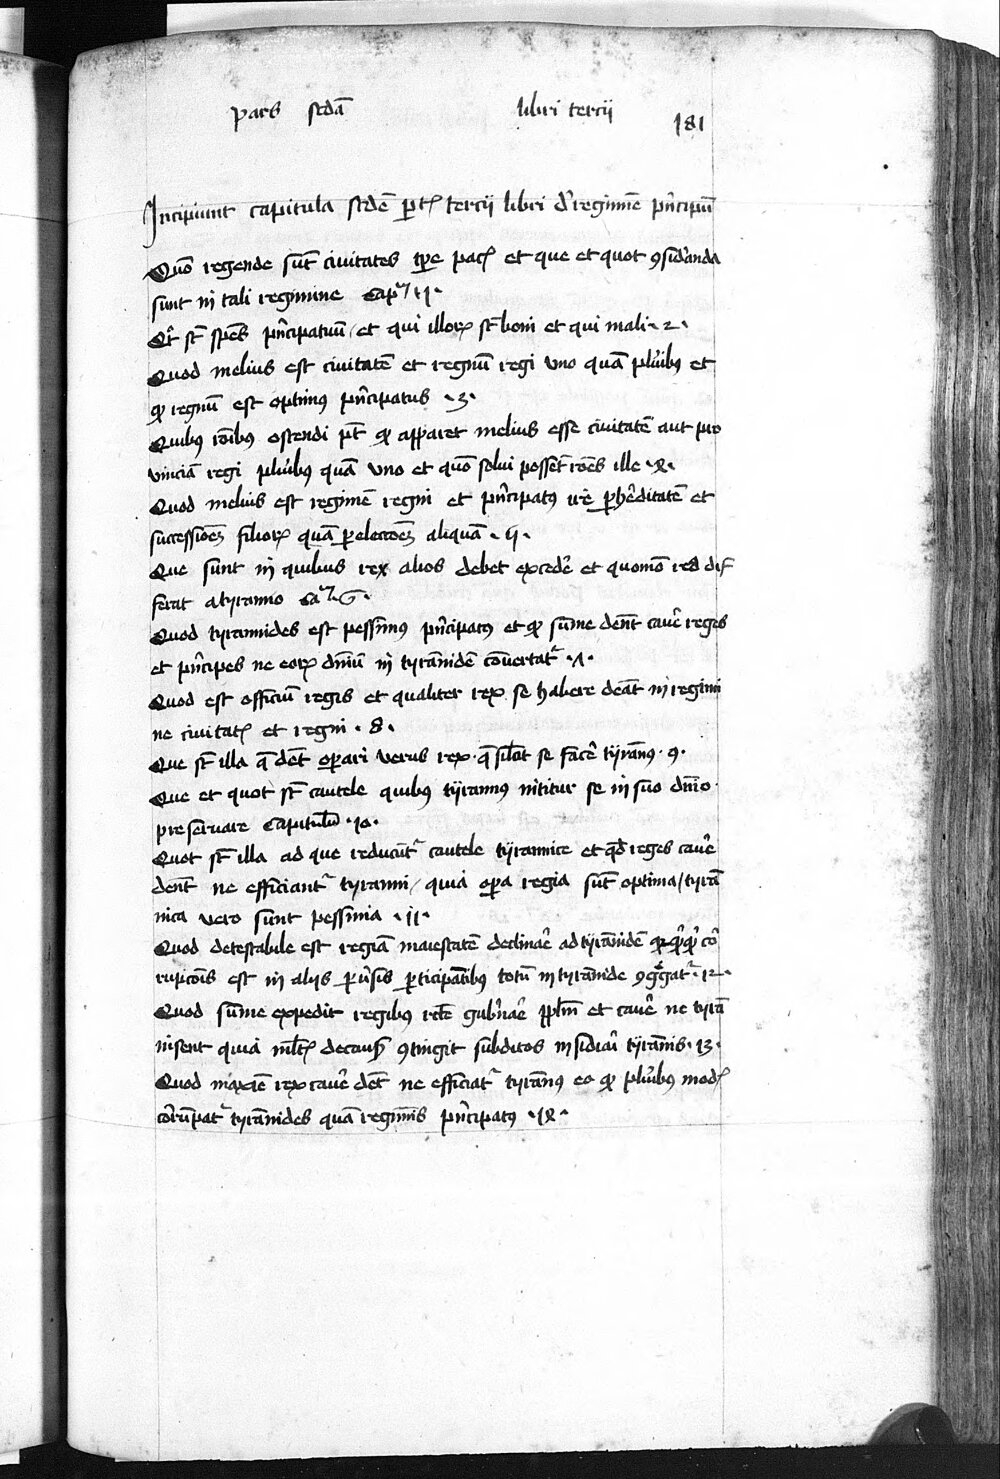 pars scdā libri tercij
181
Incipiunt capitula scdē ptꝭ tercij libri d' regimīe pncipuū
Quō regende sūt ciuitates tpe pacꝭ et que et quot ꝯsid'anda
sunt in tali regimine cap 1.
Qt st spēs pncipatuū et qui illoꝝ st boni et qui mali .2.
Quod melius est ciuitatē et regnū regi uno quā plu'ibꝰ et
qꝫ regnū est optimꝰ pncipatus .3.
Quibꝰ rōibus ostendi pt qꝫ apparet melius esse ciuitatē aut pro
uinciā regi plu'ibꝰ quā uno et quō solui possēt rōes ille .4.
Quod melius est regimē regni et pncipatꝰ ire ꝑ h'editatē et
successiōeꝫ filioꝝ quā ꝑ electōeꝫ aliquā .5.
Que sunt in quibus rex alios debet exced'e et quomō rex dif
ferat a tyranno ca 6.
Quod tyrannides est pessimꝰ pncipatꝰ et qꝫ sūme dēnt cauē reges
et pncipes ne eoꝝ dniū in tyrānidē conuertatꝛ .7.
Quod est officiū regis et qualiter rex se habere debeat in regimi
ne ciuitatꝭ et regni .8.
Que st illa q̄ dēnt oꝑari verus rex q̄ silit se facē tyrānꝰ .9.
Que et quot st cautele quibꝰ tyrannꝰ nititur se in suo dnio
preseruare capitulū .10.
Quot st illa ad que reducūtꝛ cautele tyrannice et qd reges cauē
dēnt ne efficiantꝛ tyranni / quia oꝑa regia sūt optima / tyrā
nica vero sunt pessima .11.
Quod detestabile est regiā maiestatē declinarē ad tyrānidē cō
rupcōis est in alijs ꝑu'sis totū in tyrānide ꝯg'gatꝛ .12.
Quod sūme expedit regibus rcē gub'nare pplm et cauē ne tyrā
nisent quia mltꝭ de causꝭ ꝯtingit subditos insidiari tyrānis .13.
Quod maxīe rex cauē dēt ne efficiatꝛ tyrānꝰ eo qꝫ plu'ibꝰ modꝭ
corūpatꝛ tyrānides quā regimīs pncipatꝰ .14.